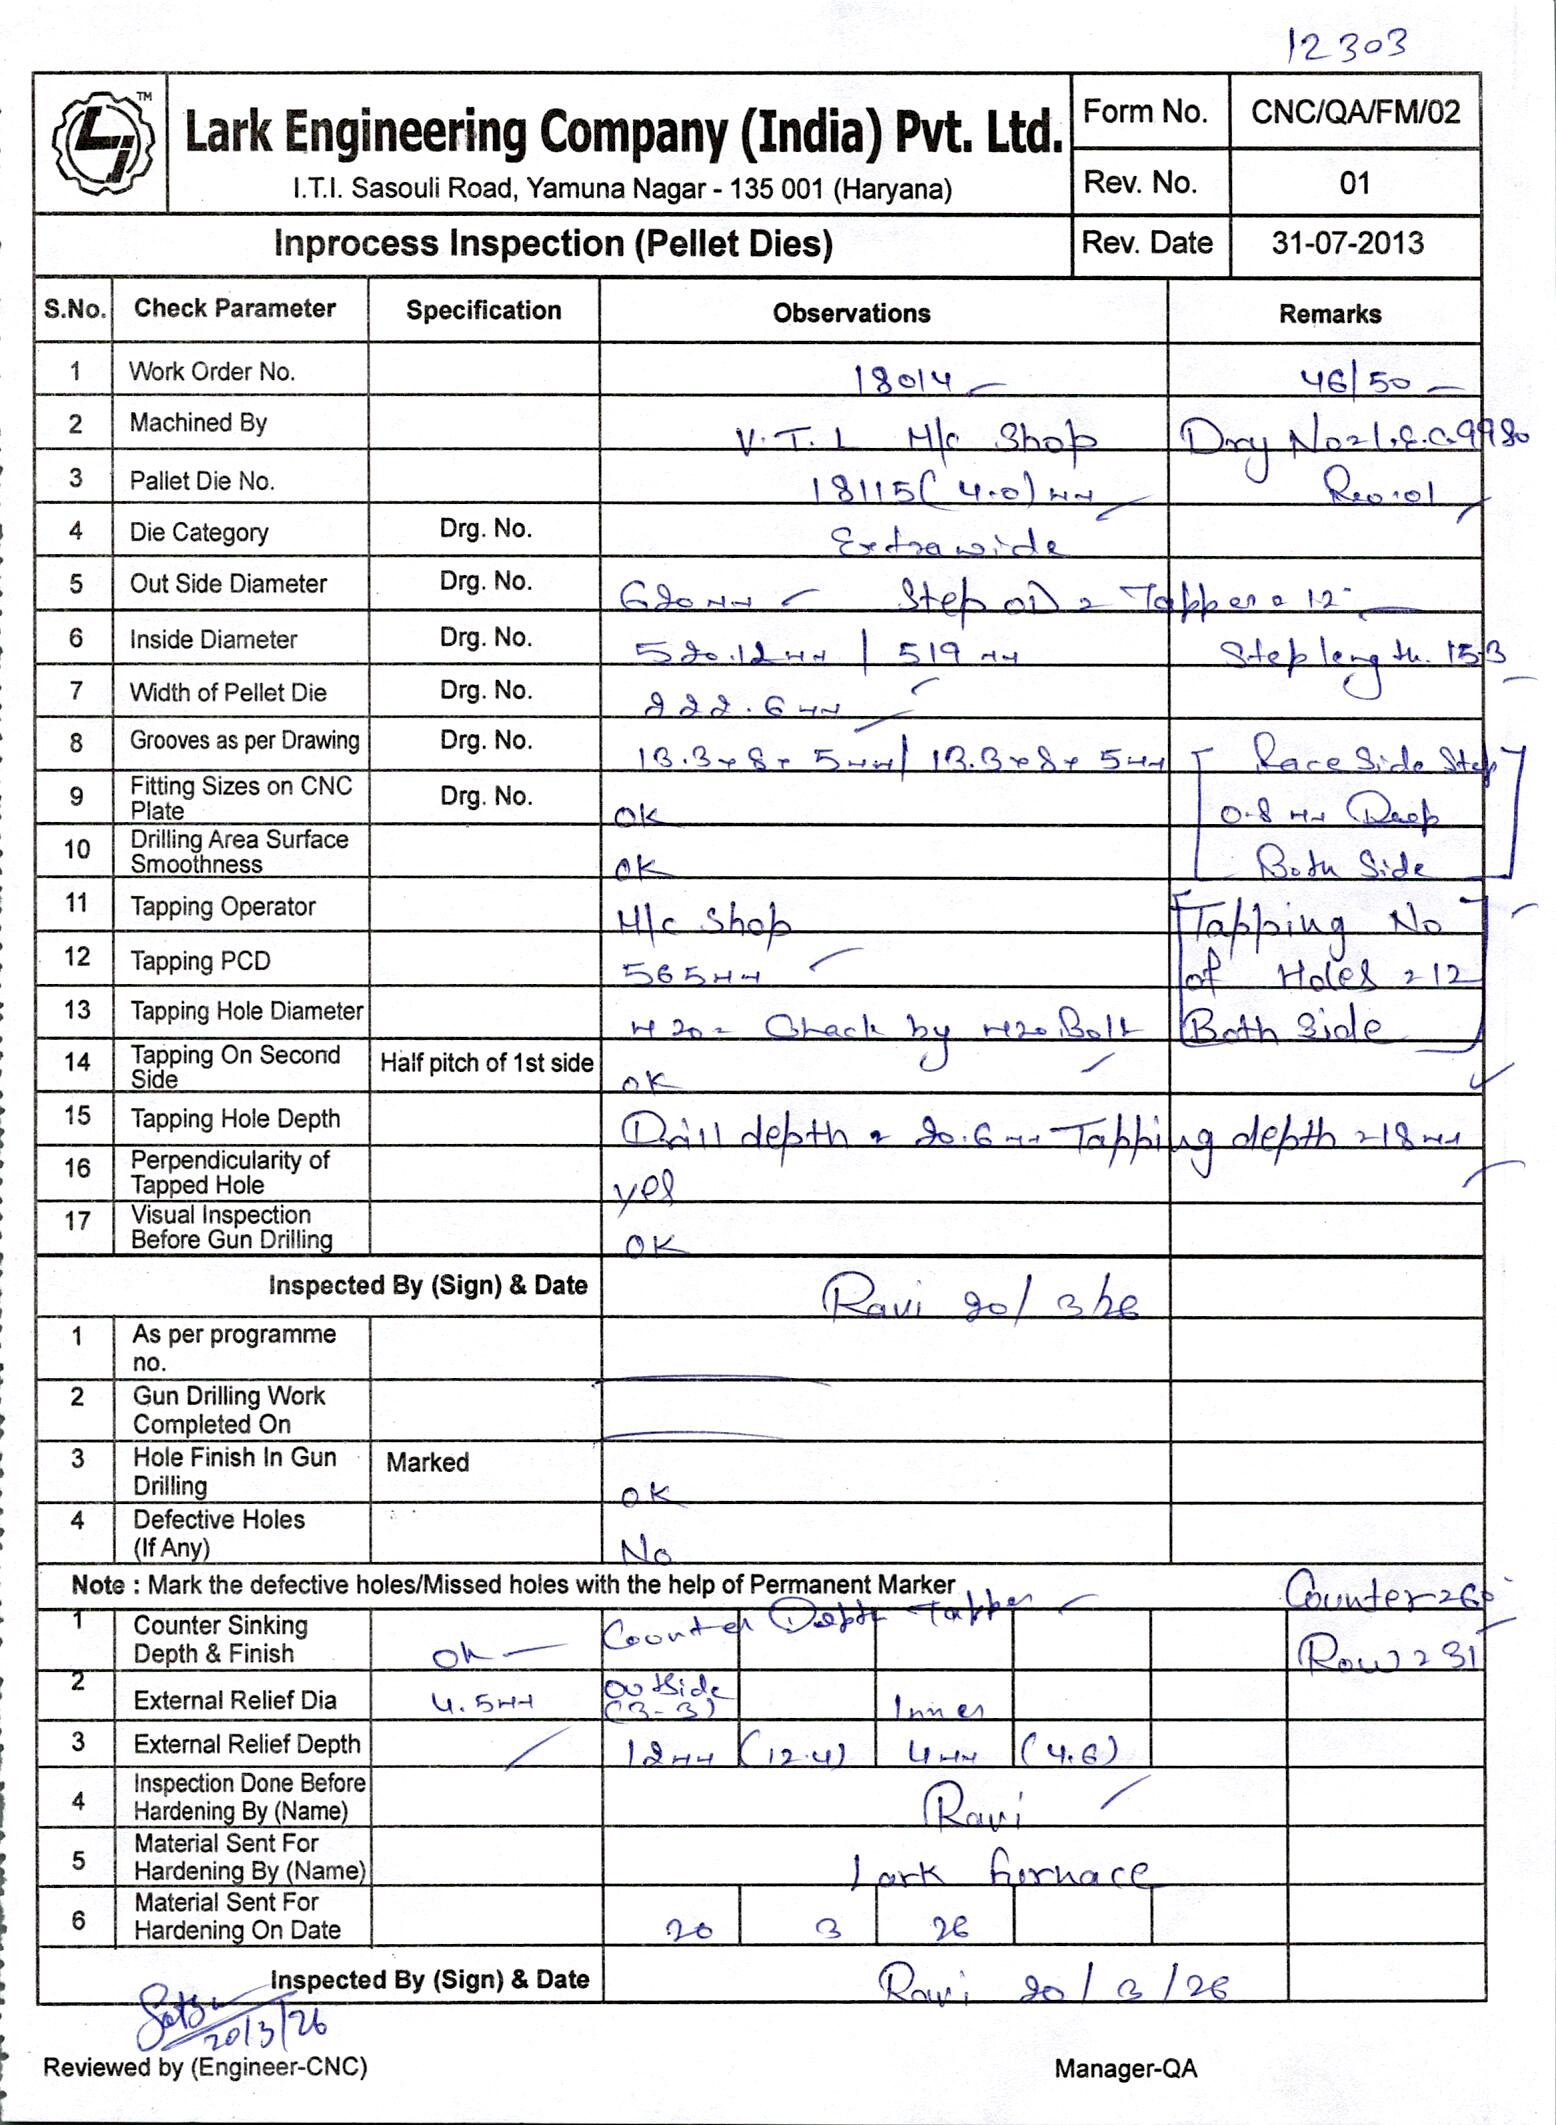 12303
TM
Lark Engineering Company (India) Pvt. Ltd.
I.T.I. Sasouli Road, Yamuna Nagar - 135 001 (Haryana)
Form No. CNC/QA/FM/02
Rev. No. 01
Inprocess Inspection (Pellet Dies) Rev. Date 31-07-2013
S.No. Check Parameter Specification Observations Remarks
1 Work Order No. 18014 46/50
2 Machined By V.T.L M/c Shop Drg No=L.E.C.9980
3 Pallet Die No. 18115(4.0)mm Rev:01
4 Die Category Drg. No. Extrawide
5 Out Side Diameter Drg. No. 620mm Step OD = Tapper = 12°
6 Inside Diameter Drg. No. 520.12mm / 519mm Step length. 153
7 Width of Pellet Die Drg. No. 222.6mm
8 Grooves as per Drawing Drg. No. 13.3×8×5mm/13.3×8×5mm Race Side Step
9 Fitting Sizes on CNC Plate Drg. No. OK 0.8mm Deep
10 Drilling Area Surface Smoothness OK Both Side
11 Tapping Operator M/c Shop Tapping No
12 Tapping PCD 565mm of Holes = 12
13 Tapping Hole Diameter M20 = Chack by M20 Bolt Both Side
14 Tapping On Second Side Half pitch of 1st side OK
15 Tapping Hole Depth Drill depth = 20.6mm Tapping depth = 18mm
16 Perpendicularity of Tapped Hole yes
17 Visual Inspection Before Gun Drilling OK
Inspected By (Sign) & Date Ravi 20/3/26
1 As per programme no.
2 Gun Drilling Work Completed On
3 Hole Finish In Gun Drilling Marked OK
4 Defective Holes (If Any) No
Note : Mark the defective holes/Missed holes with the help of Permanent Marker Counter=60°
1 Counter Sinking Depth & Finish OK Counter Depth Tapper Row = 31
2 External Relief Dia 4.5mm Outside (3-3) Inner
3 External Relief Depth 12mm (12.4) 4mm (4.6)
4 Inspection Done Before Hardening By (Name) Ravi
5 Material Sent For Hardening By (Name) Lark furnace
6 Material Sent For Hardening On Date 20 3 26
Inspected By (Sign) & Date Ravi 20/3/26
20/3/26
Reviewed by (Engineer-CNC) Manager-QA